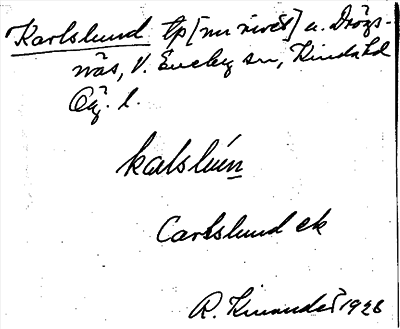 Karlslund tp [nu rivet] u. Drögs-
näs, V. Eneby sn, Kinda hd
Ög. l.
kalslún
Carlslund ek
R. Kinander 1926